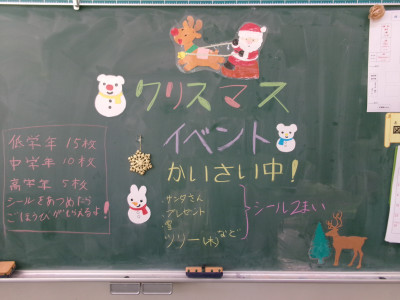 クリスマス
イベント
かいさい中!
低学年 15枚
中学年 10枚
高学年 5枚
シールをあつめたら
ごほうびがもらえるよ!
サンタさん
プレゼント
雪
ツリー(木)など
シール2まい
図